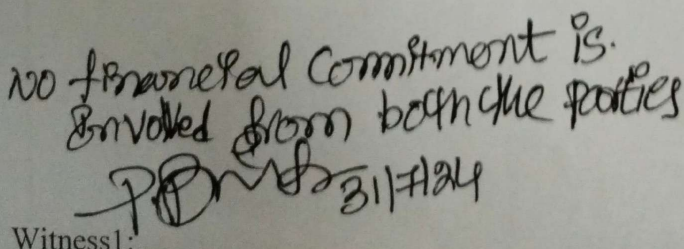 No financial Commitment is.
Envolled from both the parties
31/7/24
Witness1: